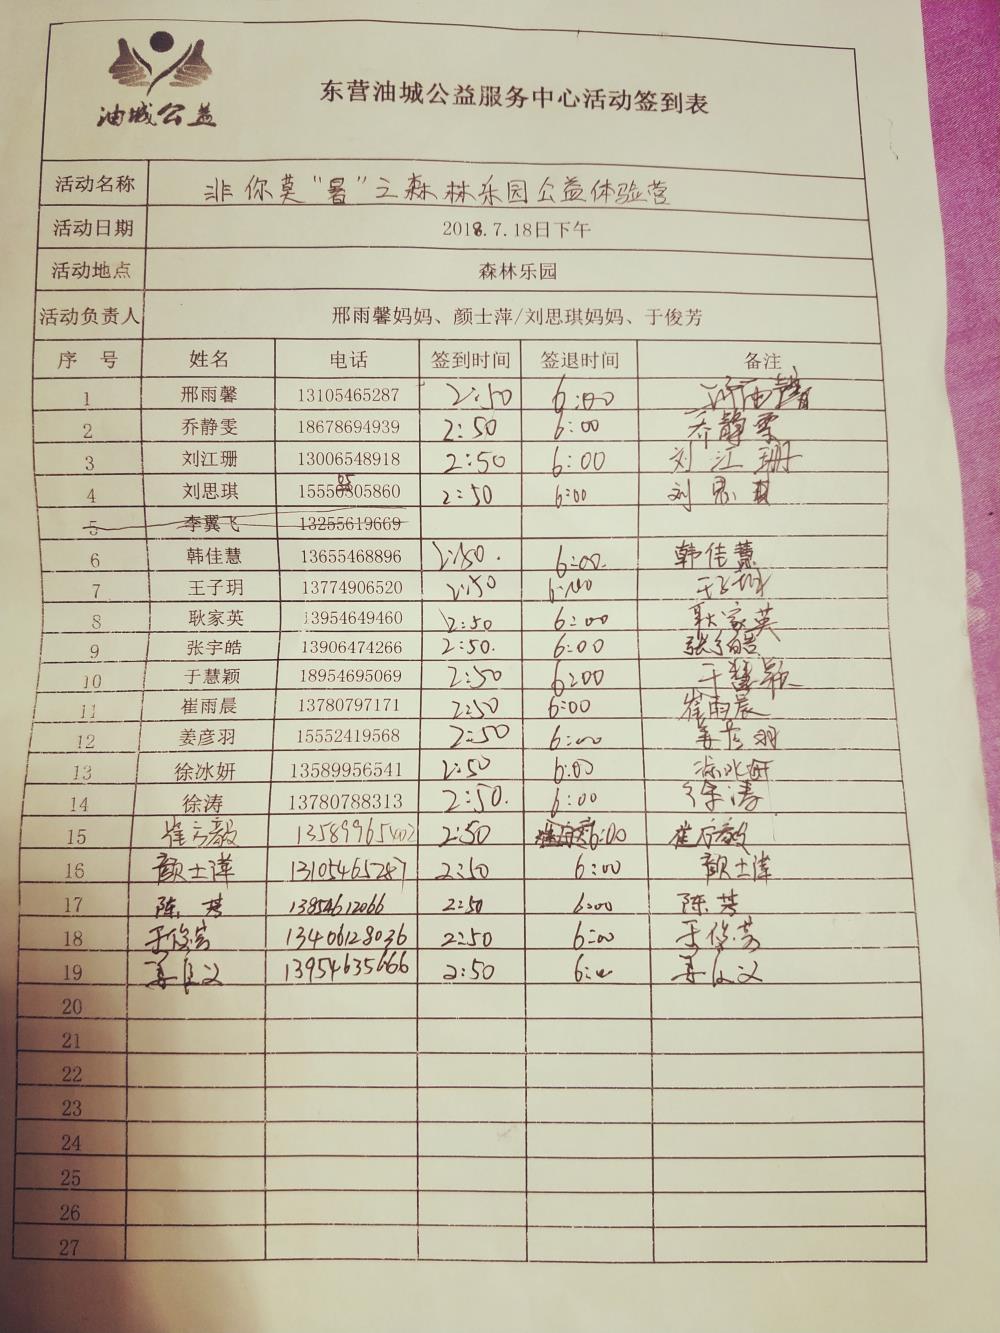 油城公益
东营油城公益服务中心活动签到表
活动名称 非你莫“暑”之森林乐园公益体验营
活动日期 2018.7.18日下午
活动地点 森林乐园
活动负责人 邢雨馨妈妈、颜士萍/刘思琪妈妈、于俊芳
序号 姓名 电话 签到时间 签退时间 备注
1 邢雨馨 13105465287 2:50 6:00 邢雨馨
2 乔静雯 18678694939 2:50 6:00 乔静雯
3 刘江珊 13006548918 2:50 6:00 刘江珊
4 刘思琪 15550805860 2:50 6:00 刘思琪
5 李翼飞 13255619669
6 韩佳慧 13655468896 2:50. 6:00. 韩佳慧
7 王子玥 13774906520 2:50 6:00 王子玥
8 耿家英 13954649460 2:50 6:00 耿家英
9 张宇皓 13906474266 2:50. 6:00 张宇皓
10 于慧颖 18954695069 2:50 6:00 于慧颖
11 崔雨晨 13780797171 2:50 6:00 崔雨晨
12 姜彦羽 15552419568 2:50 6:00 姜彦羽
13 徐冰妍 13589956541 2:50 6:00 徐冰妍
14 徐涛 13780788313 2:50. 6:00 徐涛
15 崔方毅 13589965402 2:50 6:00 崔方毅
16 颜士萍 13105465287 2:50 6:00 颜士萍
17 陈芳 13854612066 2:50 6:00 陈芳
18 于俊芳 13406128036 2:50 6:00 于俊芳
19 姜良义 13954635666 2:50 6:00 姜良义
20
21
22
23
24
25
26
27